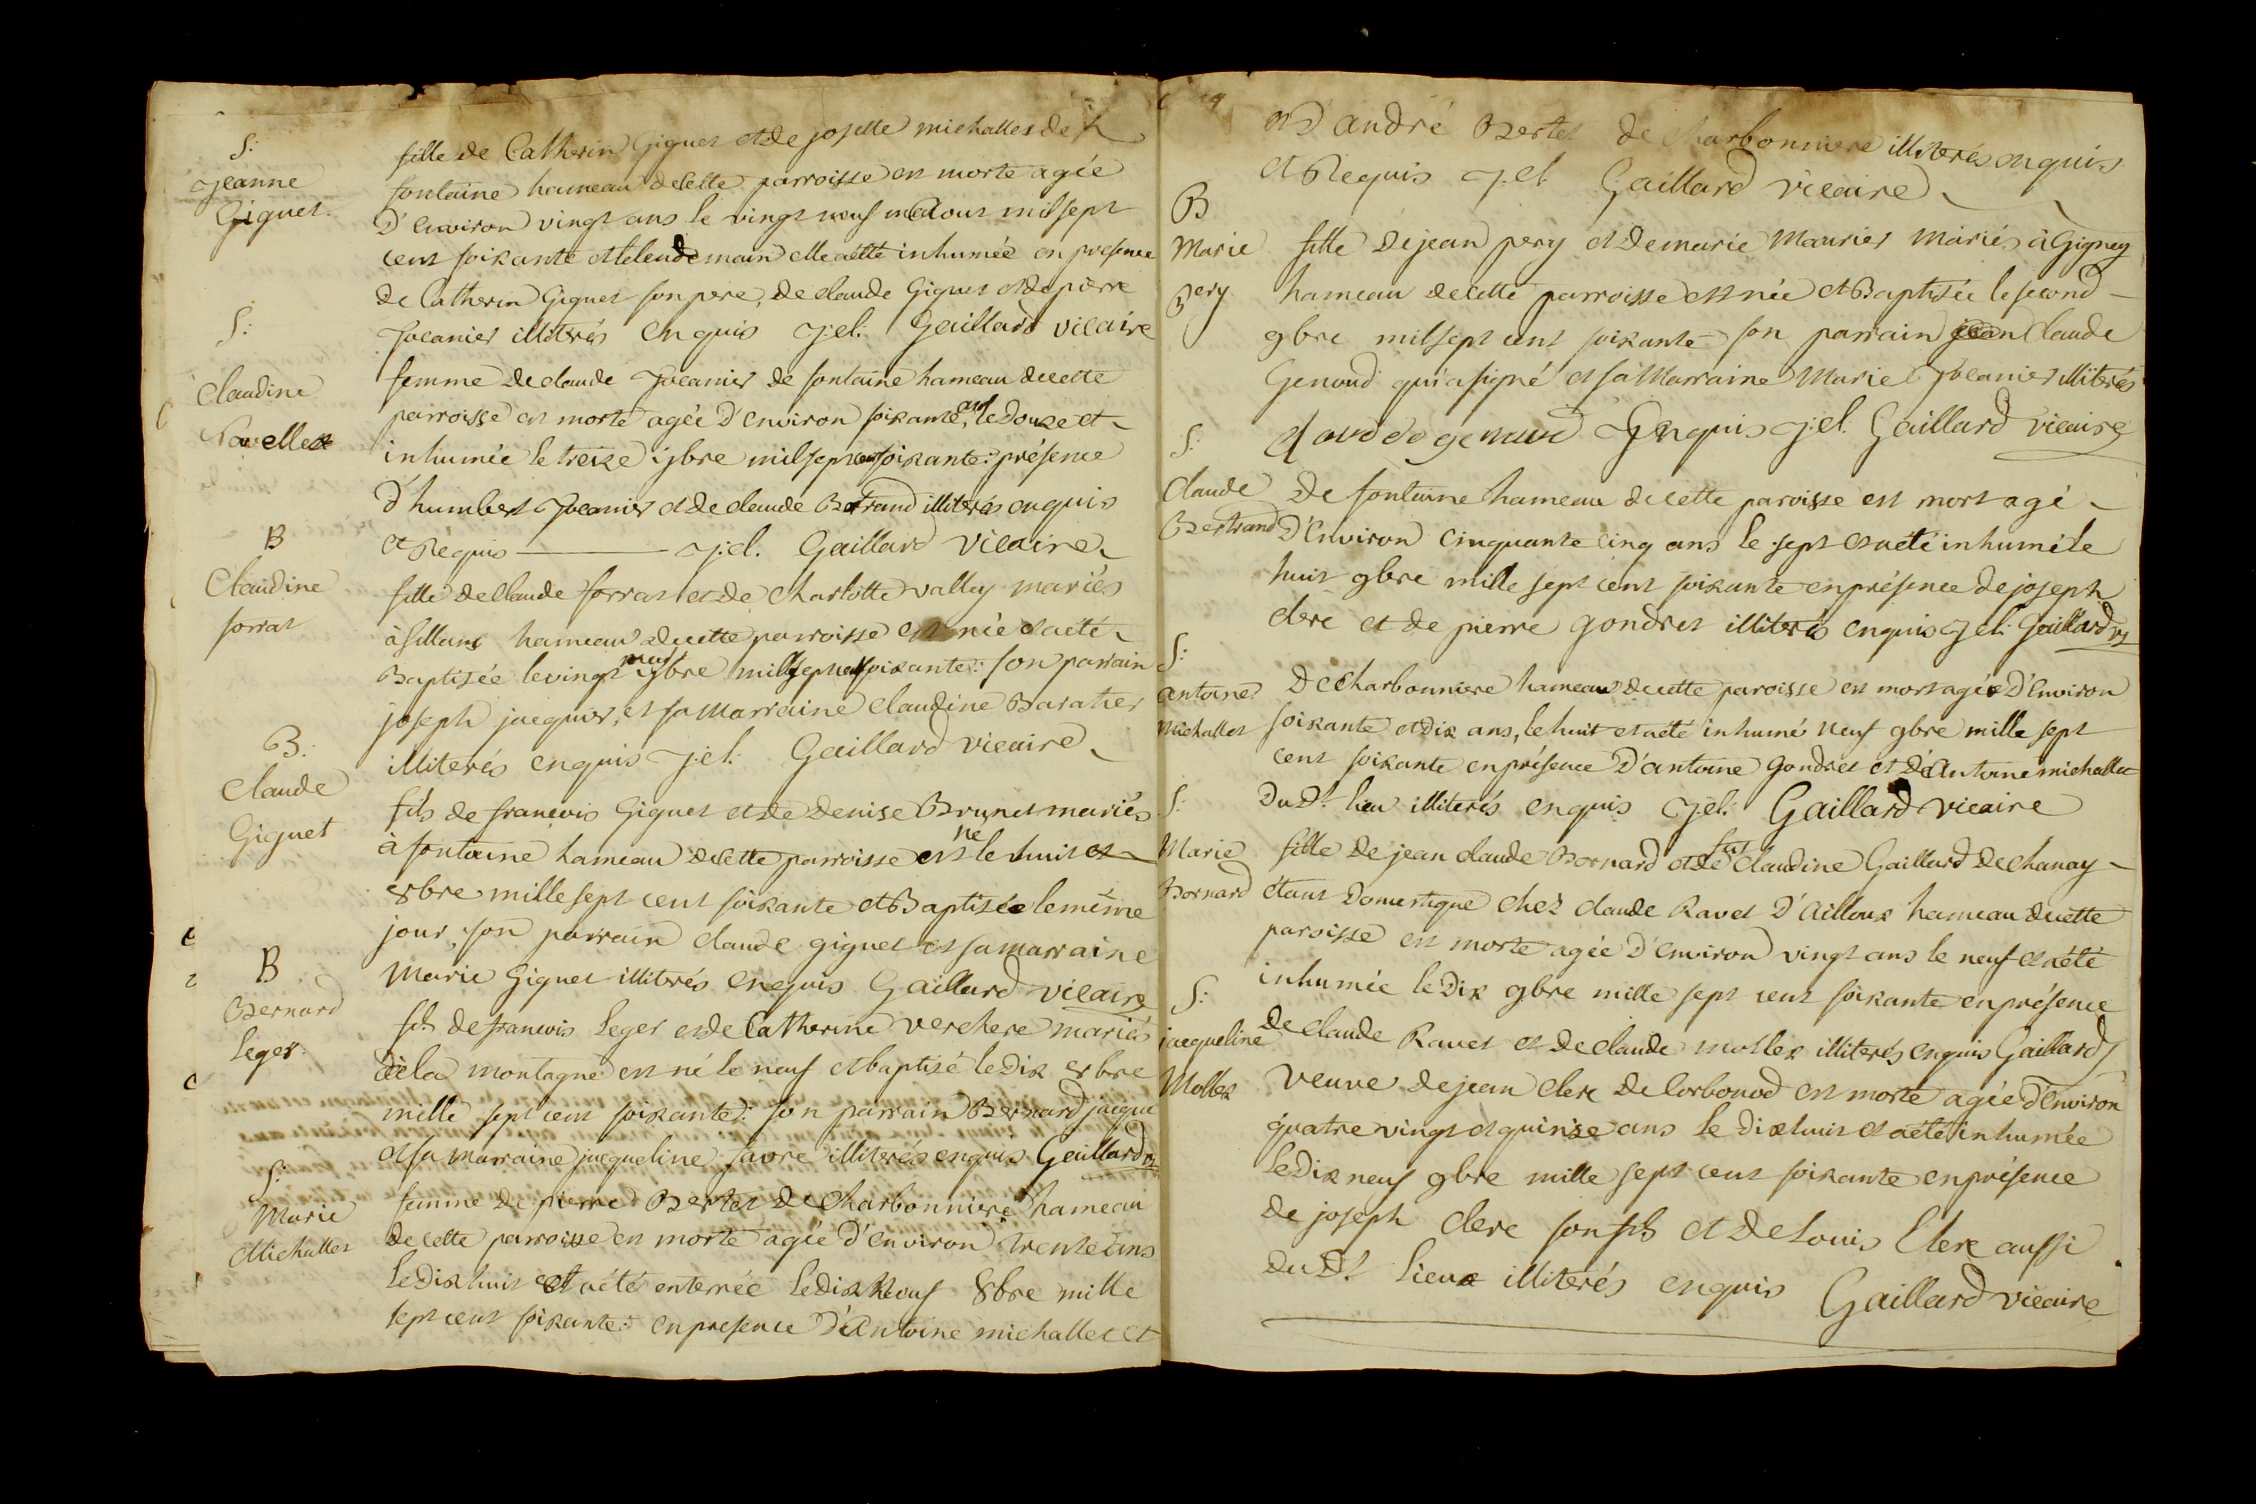 S:
Jeanne
Giguet
fille de Catherin Giguet et de josette michallet de
fontaine hameau de cette parroisse est morte agée
D'environ vingt ans le vingt neuf aout mil sept
cent soixante et le lendemain elle a été inhumée en presence
de Catherin Giguet son pere, de claude Giguet et de pierre
illiterés enquis Gaillard vicaire
S:
Claudine
femme de claude de fontaine hameau de cette
parroisse est morte agée d'environ soixante ans le Douze et
inhumée le treize 7bre mil sept cent soixante: présence
d'humbert et de claude Bertrand illiterés enquis
et Requis Gaillard Vicaire
B
Claudine
forrat
fille de claude forrat et de Charlotte valley mariés
à Sillans hameau de cette parroisse est née et a été
Baptisée le vingt neuf 7bre mil sept cent soixante: son parrain
joseph jacquier, et sa Marraine claudine Baratier
illiterés enquis Gaillard vicaire
B.
Claude
Giguet
fils de francois Giguet et de Denise Brunet mariés
à fontaine hameau de cette parroisse est né le huit
8bre mille sept cent soixante et Baptisée le même
jour, son parrain claude giguet et sa marraine
Marie Giguet illiterés enquis Gaillard vicaire
B
Bernard
Leger
fils de francois Leger et de Catherine verchere mariés
de la montagne est né le neuf et baptisé le Dix 8bre
mille sept cent soixante: son parrain Bernard jacque
et sa marraine jacqueline favre illiterés enquis Gaillard v
S:
Marie
Michallet
femme de pierre Bertet de Charbonniere hameau
de cette parroisse est morte agée d'environ trente ans
le Dix huit et a été enterrée le Dix Neuf 8bre mille
sept cent soixante: en presence D'Antoine michallet et
et D'andré Bertet de Charbonniere illiterés enquis
et Requis Gaillard vicaire
B
Marie
pery
fille de jean pery et de marie Maurier mariés à Gigney
hameau de cette parroisse est née et Baptisée le second
9bre mil sept cent soixante son parrain claude
Genoud qui a signé et sa Marraine Marie illiterés
claude genoud Enquis Gaillard vicaire
S:
Claude
Bertrand
De fontaine hameau de cette paroisse est mort agé
D'environ cinquante cinq ans le sept et a été inhumé le
huit 9bre mille sept cent soixante en présence de joseph
clerc et de pierre gondret illiterés enquis Gaillard v
S:
antoine
Michallet
De Charbonniere hameau de cette paroisse est mort agée D'environ
soixante et dix ans, le huit et a été inhumé neuf 9bre mille sept
cent soixante en présence D'antoine gondret et D'Antoine michallet
du dt. lieu illiterés enquis Gaillard vicaire
S:
Marie
Bornard
fille de jean claude Bornard et de fut claudine Gaillard de chanay
étant Domestique chez claude Ravet D'Ailloux hameau de cette
paroisse est morte agée d'environ vingt ans le neuf et a été
inhumée le Dix 9bre mille sept cent soixante en présence
de claude Ravet et de claude mollex illiterés enquis Gaillard
S:
jacqueline
Mollex
veuve de jean clerc de Corbonod est morte agée d'environ
quatre vingt et quinze ans le dix huit et a été inhumée
le Dix neuf 9bre mille sept cent soixante en présence
de joseph clerc son fils et de Louis Clerc aussi
du dt. Lieux illiterés enquis Gaillard vicaire